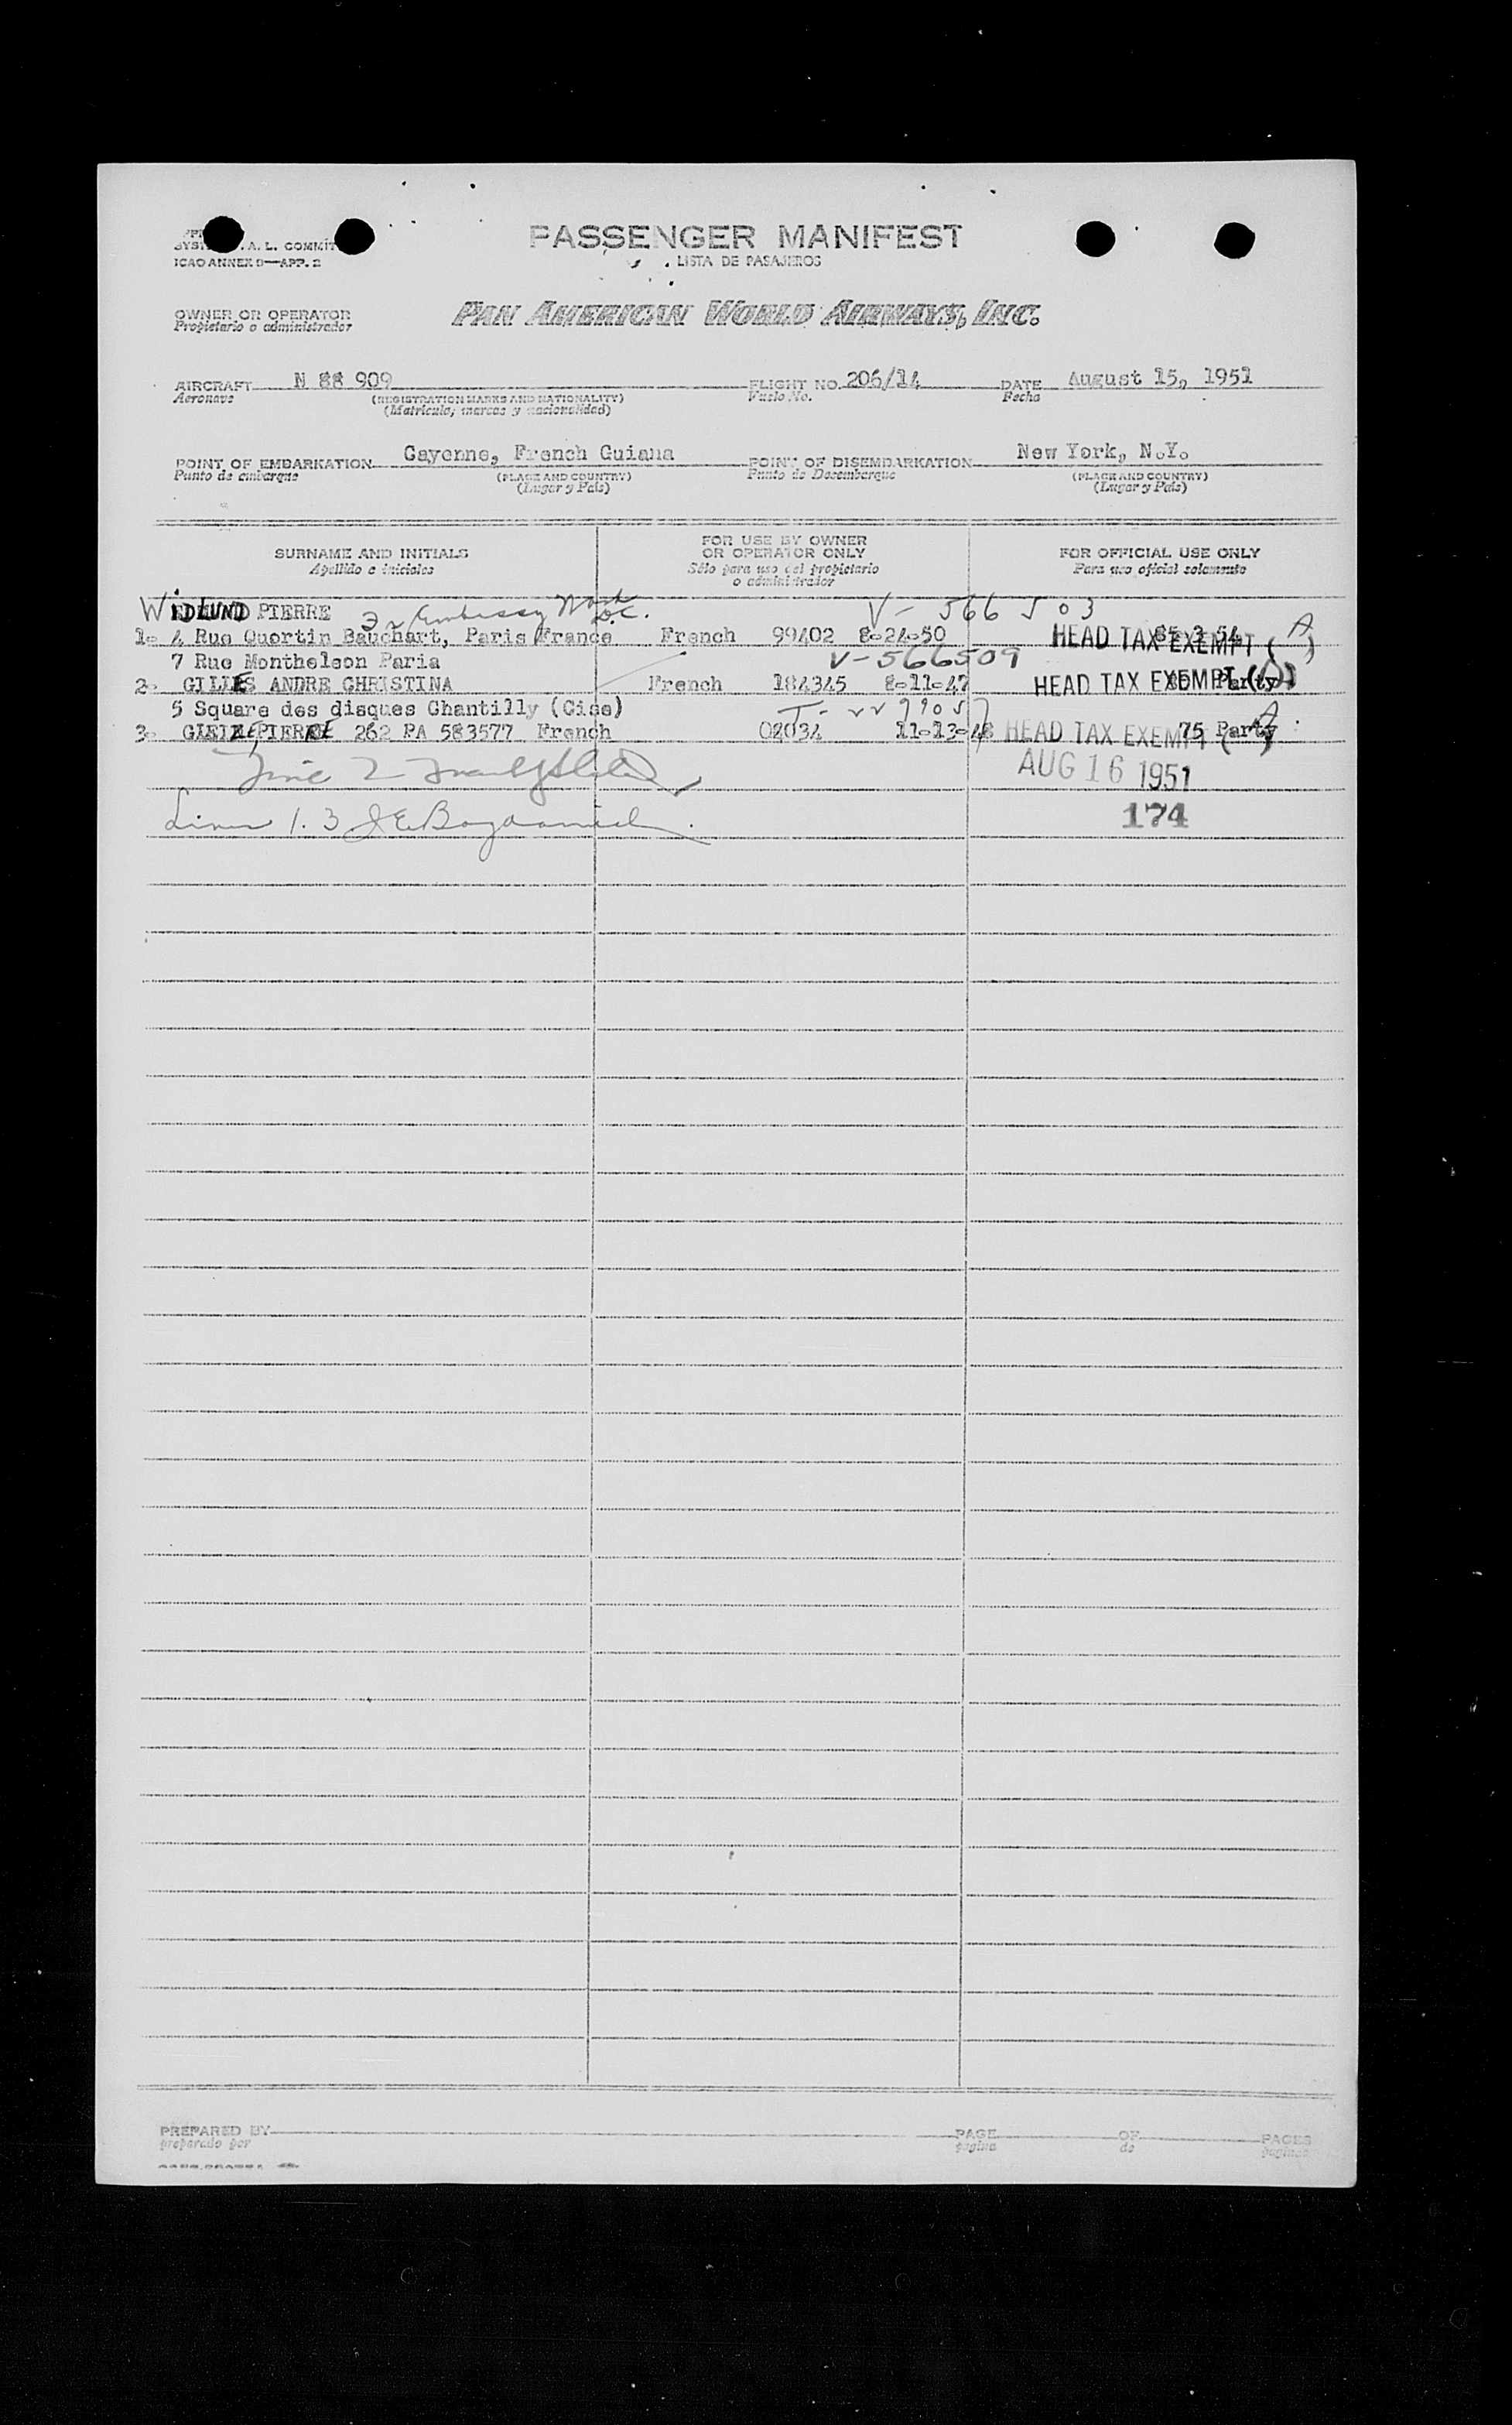 PASSENGER MANIFEST
A. L. COMMIT
LISTA DE PASAJEROS
ICAO ANNEX 9—APP. 2
OWNER OR OPERATOR PAN AMERICAN WORLD AIRWAYS, INC.
Propietario o administrador
AIRCRAFT N 88 909 FLIGHT NO. 206/14 DATE August 15, 1951
Aeronave (REGISTRATION MARKS AND NATIONALITY) Vuelo No. Fecha
(Matricula, marcas y nacionalidad)
POINT OF EMBARKATION Cayenne, French Guiana POINT OF DISEMBARKATION New York, N.Y.
Punto de embarque (PLACE AND COUNTRY) Punto de Desembarque (PLACE AND COUNTRY)
(Lugar y País) (Lugar y País)
SURNAME AND INITIALS FOR USE BY OWNER OR OPERATOR ONLY FOR OFFICIAL USE ONLY
Apellido e iniciales Sólo para uso del propietario o administrador Para uso oficial solamente
WIDLUND PIERRE Embassy Wash D.C. V- 566503
1- 4 Rue Quertin Bauchart, Paris France French 99402 8-24-50 HEAD TAX EXEMPT ( A )
7 Rue Monthelson Paris V-566509
2- GILLES ANDRE CHRISTINA French 184345 8-11-47 HEAD TAX EXEMPT Party
5 Square des disques Chantilly (Oise)
3- PIERRE 262 PA 583577 French 02034 11-13-48 HEAD TAX EXEMPT 75 Party
AUG 16 1951
Lines 1. 3
174
PREPARED BY PAGE OF PAGES
preparado por página de páginas